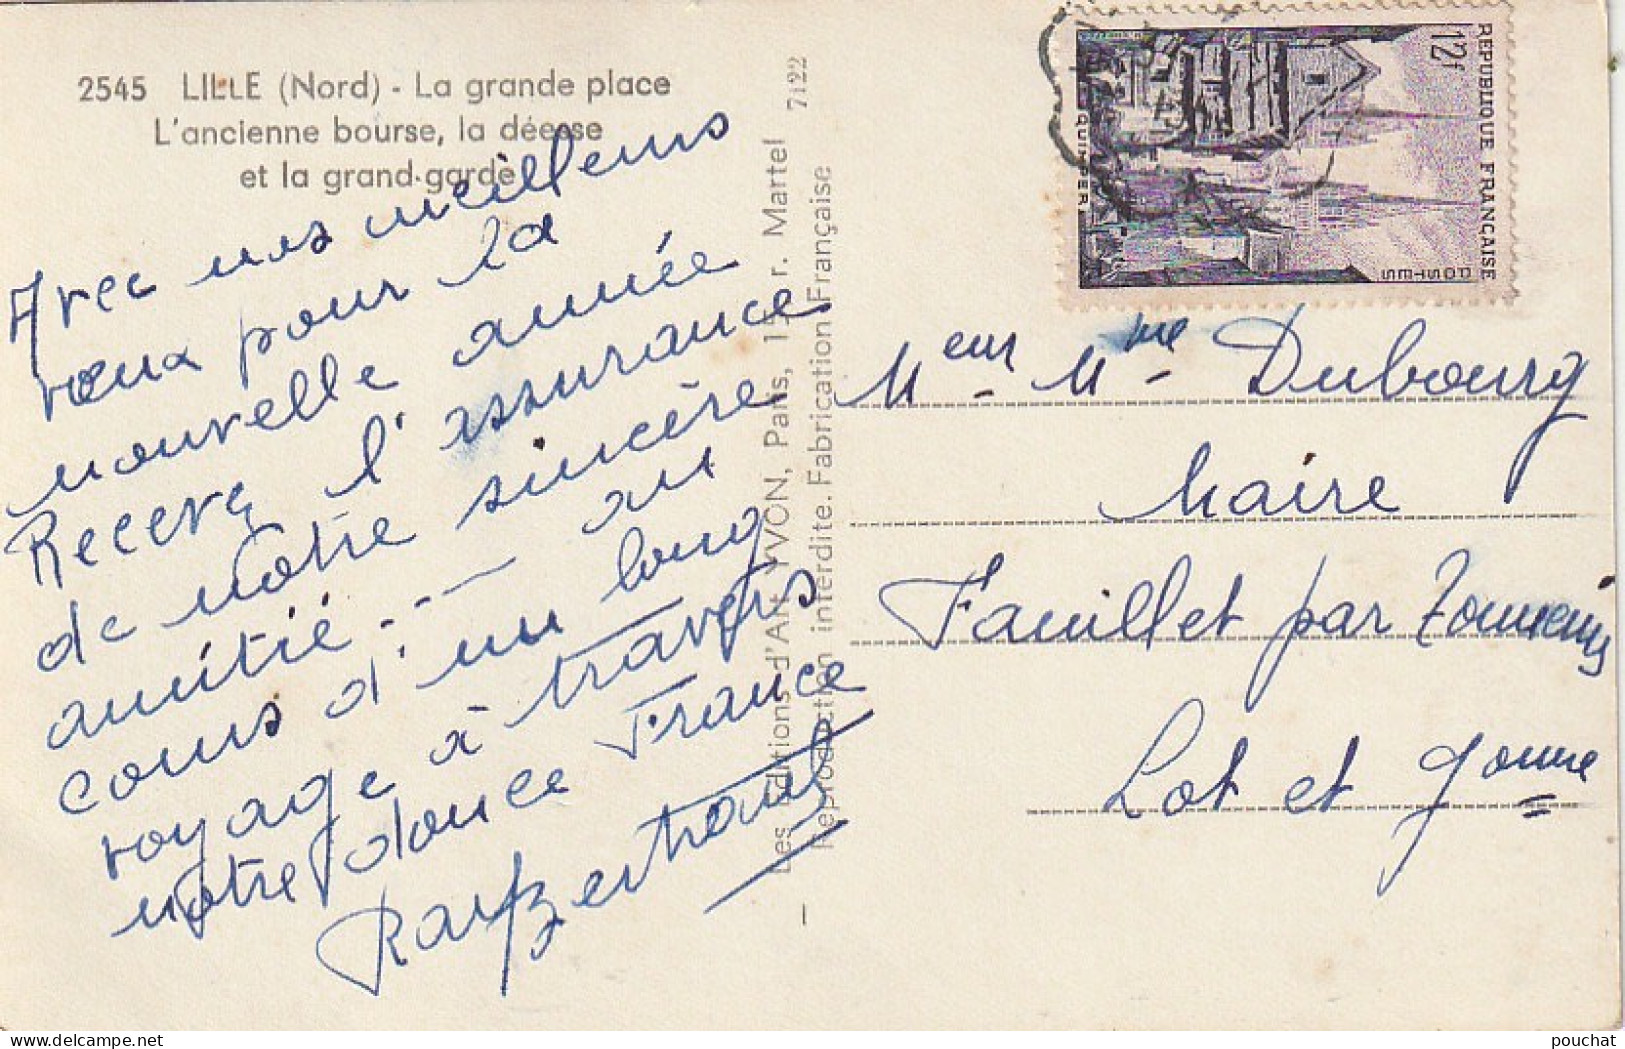 2545 LILLE (Nord) - La grande place
L'ancienne bourse, la déesse
et la grand-garde
Avec nos meilleurs
vœux pour la
nouvelle année
Recevez l'assurance
de notre sincère
amitié --- au
cours d'un long
voyage à travers
notre douce France
Les Editions d'Art YVON, Paris, 15 r. Martel
Reproduction interdite. Fabrication Française
7122
REPUBLIQUE FRANÇAISE
12f
POSTES
QUIMPER
Meur Mme Dubourg
Maire
Fauillet par Tonneins
Lot et Gonne
pouchat